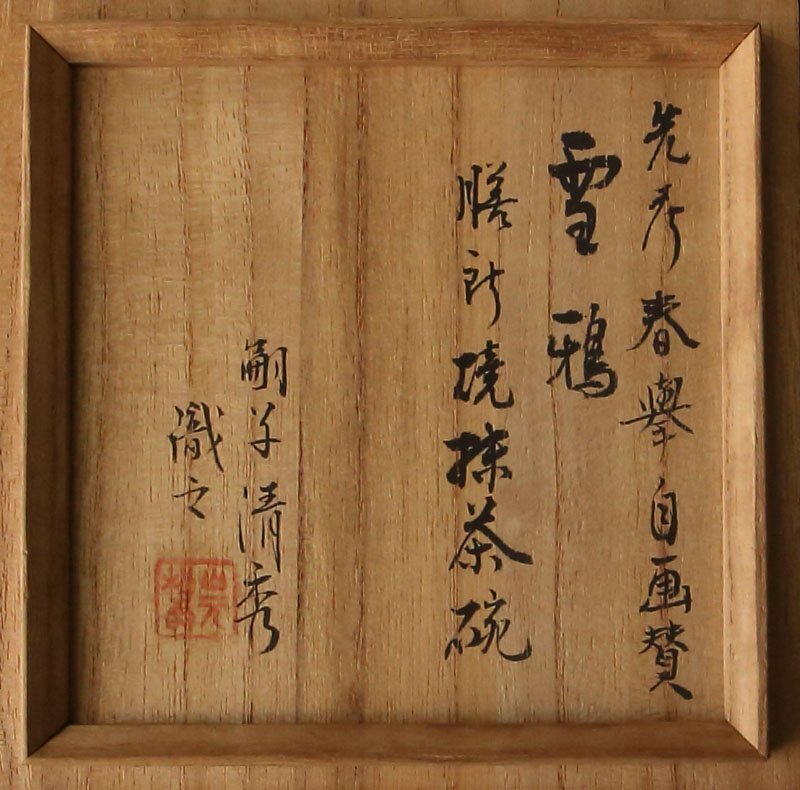 先考春擧自画賛
雪鴉
膳所焼抹茶碗
嗣子清秀
識之